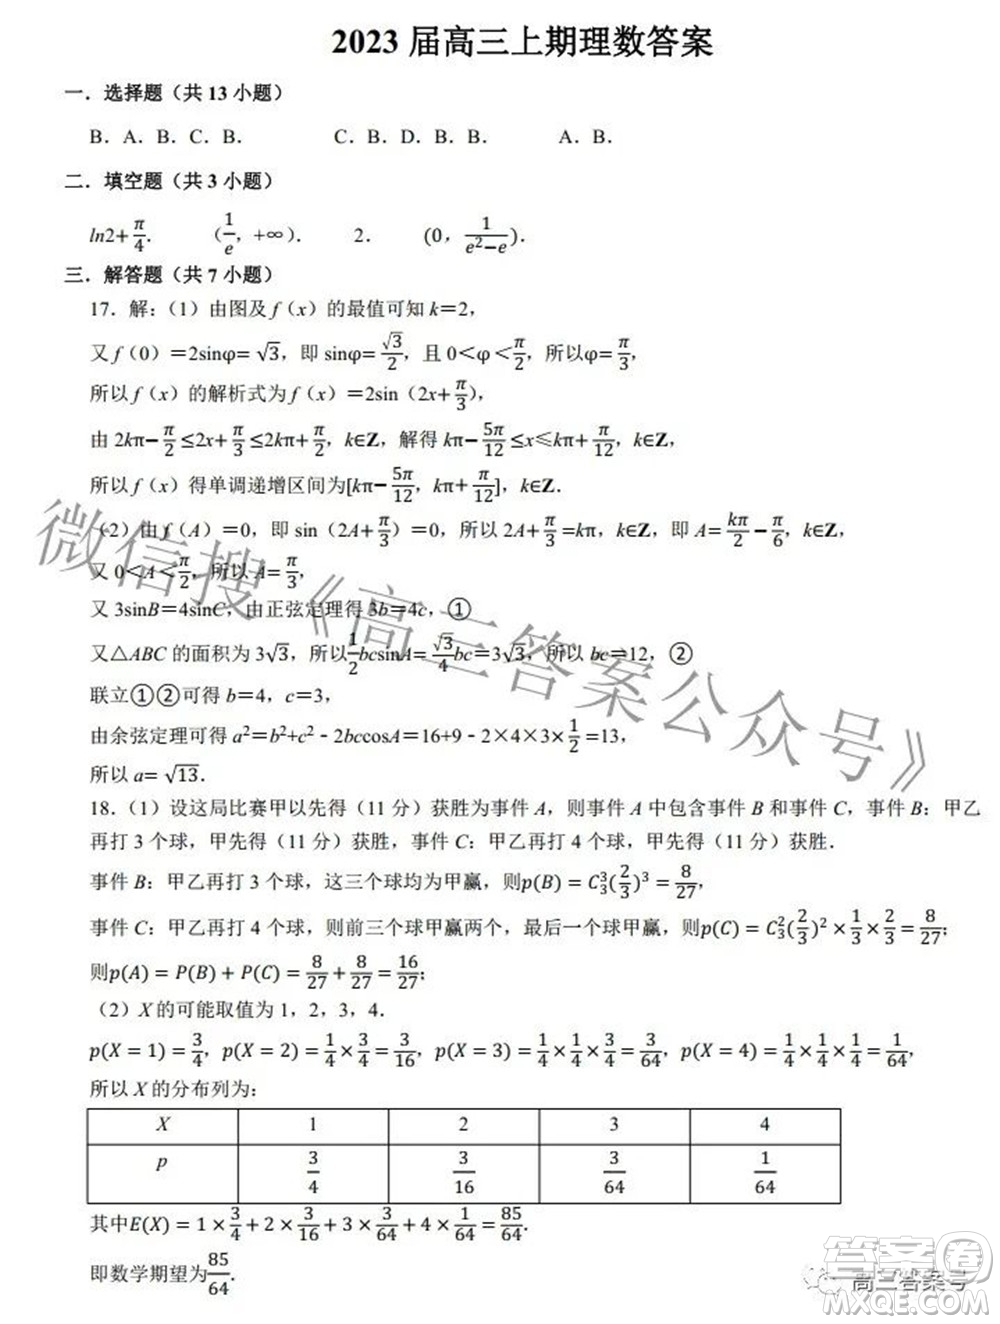 2023 届高三上期理数答案
一．选择题（共 13 小题）
B．A．B．C．B． C．B．D．B．B． A．B．
二．填空题（共 3 小题）
ln2+π/4． （1/e，+∞）． 2． (0，1/(e²−e))．
三．解答题（共 7 小题）
17．解：（1）由图及 f（x）的最值可知 k＝2，
又 f（0）＝2sinφ= √3，即 sinφ= √3/2，且 0＜φ＜π/2，所以φ= π/3，
所以 f（x）的解析式为 f（x）＝2sin（2x+ π/3），
由 2kπ− π/2 ≤2x+ π/3 ≤2kπ+ π/2，k∈Z，解得 kπ− 5π/12 ≤x≤kπ+ π/12，k∈Z，
所以 f（x）得单调递增区间为[kπ− 5π/12，kπ+ π/12]，k∈Z．
（2）由 f（A）＝0，即 sin（2A+ π/3）＝0，所以 2A+ π/3 =kπ，k∈Z，即 A= kπ/2 − π/6，k∈Z，
又 0＜A＜π/2，所以 A= π/3，
又 3sinB＝4sinC，由正弦定理得 3b＝4c，①
又△ABC 的面积为 3√3，所以 1/2 bcsinA= √3/4 bc＝3√3，所以 bc＝12，②
联立①②可得 b＝4，c＝3，
由余弦定理可得 a²＝b²+c² - 2bccosA＝16+9 - 2×4×3× 1/2 =13，
所以 a= √13．
18．（1）设这局比赛甲以先得（11 分）获胜为事件 A，则事件 A 中包含事件 B 和事件 C，事件 B：甲乙
再打 3 个球，甲先得（11 分）获胜，事件 C：甲乙再打 4 个球，甲先得（11 分）获胜．
事件 B：甲乙再打 3 个球，这三个球均为甲赢，则p(B) = C₃³(2/3)³ = 8/27，
事件 C：甲乙再打 4 个球，则前三个球甲赢两个，最后一个球甲赢，则p(C) = C₃²(2/3)² × 1/3 × 2/3 = 8/27；
则p(A) = P(B) + P(C) = 8/27 + 8/27 = 16/27；
（2）X 的可能取值为 1，2，3，4．
p(X = 1) = 3/4，p(X = 2) = 1/4 × 3/4 = 3/16，p(X = 3) = 1/4 × 1/4 × 3/4 = 3/64，p(X = 4) = 1/4 × 1/4 × 1/4 = 1/64，
所以 X 的分布列为：
X 1 2 3 4
p 3/4 3/16 3/64 1/64
其中E(X) = 1 × 3/4 + 2 × 3/16 + 3 × 3/64 + 4 × 1/64 = 85/64．
即数学期望为 85/64．
微信搜《高三答案公众号》
高三答案号
答案圈
MXQE.COM